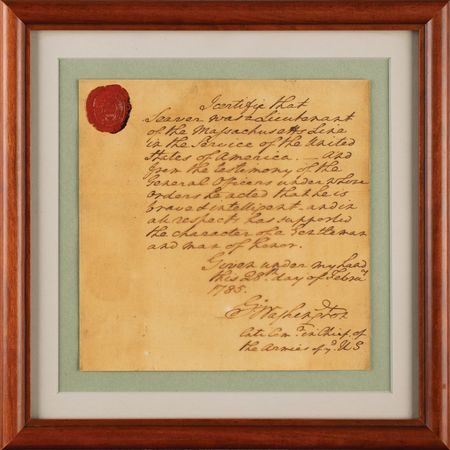 I certify that
Seaver was a Lieutenant
of the Massachusetts Line
in the Service of the United
States of America. — And
from the testimony of the
General Officers under whose
orders he acted that he is
brave & intelligent and in
all respects has supported
the character of a Gentleman
and man of honor.
Given under my hand
this 28th day of Febry
1785.
Go Washington
late Comr in Chief of
the Armies of ye U S